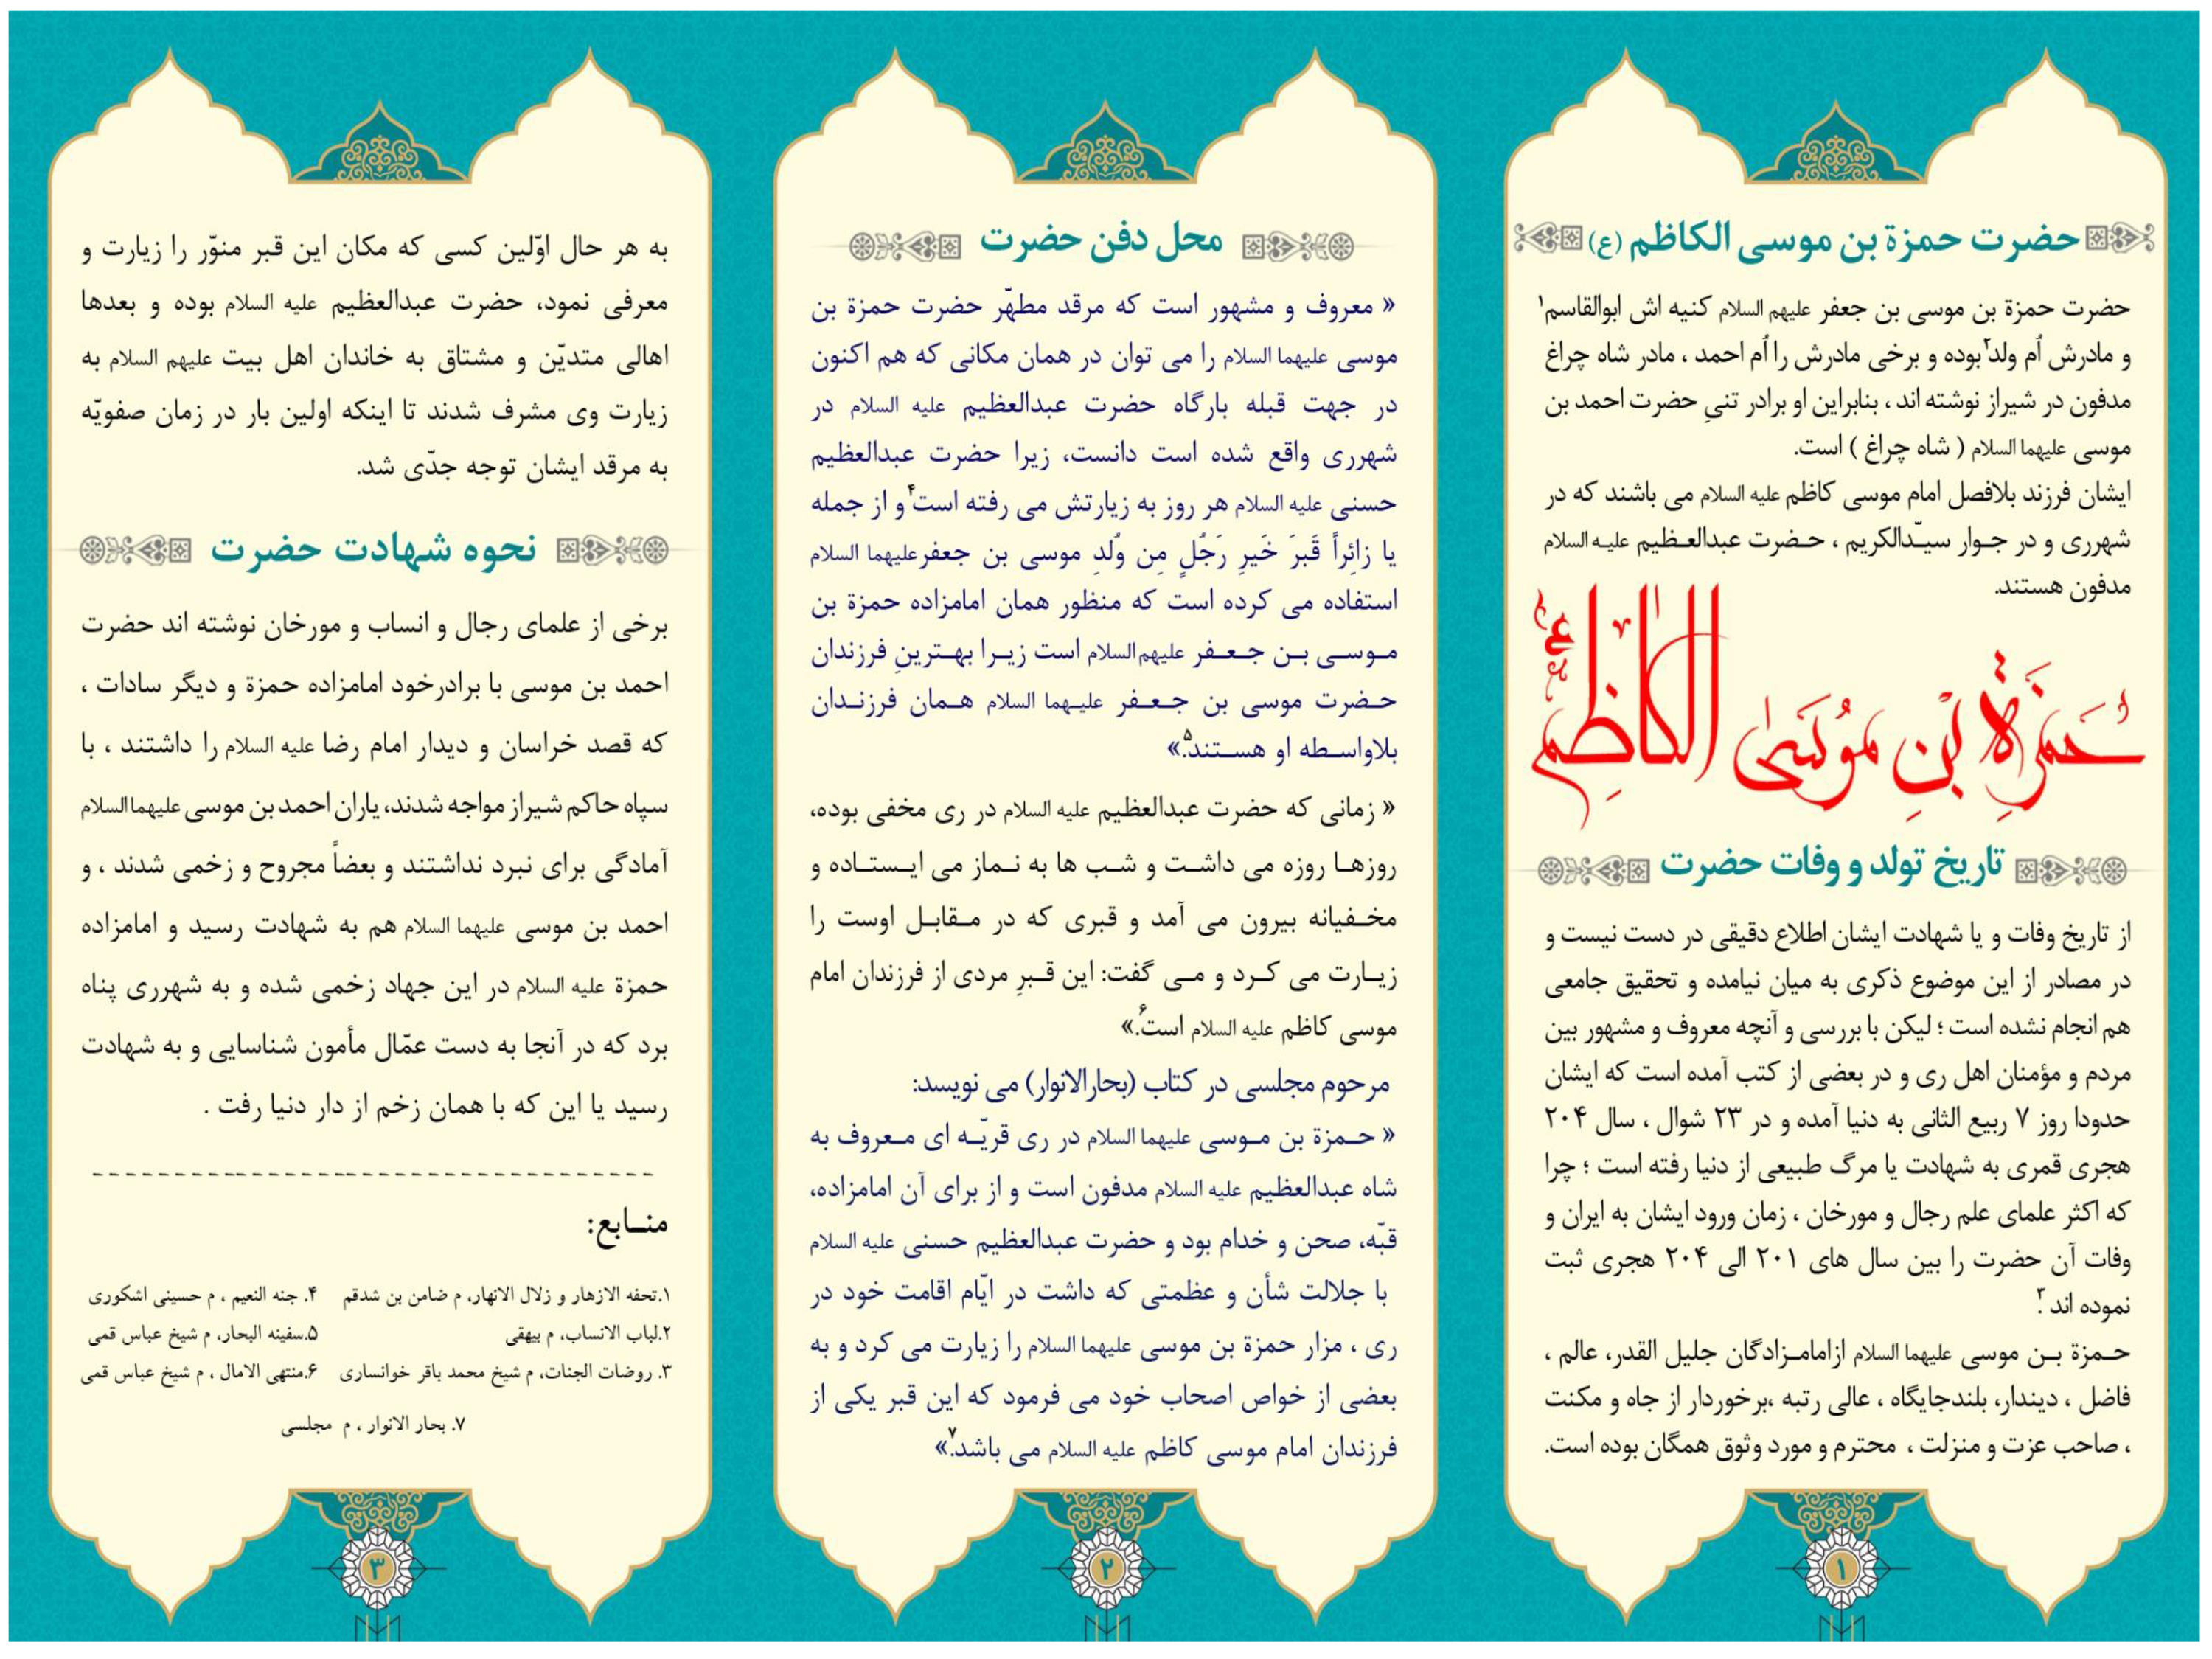 حضرت حمزة بن موسی الکاظم (ع)
حضرت حمزة بن موسی بن جعفر علیهم السلام کنیه اش ابوالقاسم۱
و مادرش اُم ولد۲ بوده و برخی مادرش را اُم احمد ، مادر شاه چراغ
مدفون در شیراز نوشته اند ، بنابراین او برادر تنیِ حضرت احمد بن
موسی علیهما السلام ( شاه چراغ ) است.
ایشان فرزند بلافصل امام موسی کاظم علیه السلام می باشند که در
شهرری و در جوار سیّدالکریم ، حضرت عبدالعظیم علیه السلام
مدفون هستند.
حَمزَةِ بْنِ مُوسَی الکاظِم ع
تاریخ تولد و وفات حضرت
از تاریخ وفات و یا شهادت ایشان اطلاع دقیقی در دست نیست و
در مصادر از این موضوع ذکری به میان نیامده و تحقیق جامعی
هم انجام نشده است ؛ لیکن با بررسی و آنچه معروف و مشهور بین
مردم و مؤمنان اهل ری و در بعضی از کتب آمده است که ایشان
حدودا روز ۷ ربیع الثانی به دنیا آمده و در ۲۳ شوال ، سال ۲۰۴
هجری قمری به شهادت یا مرگ طبیعی از دنیا رفته است ؛ چرا
که اکثر علمای علم رجال و مورخان ، زمان ورود ایشان به ایران و
وفات آن حضرت را بین سال های ۲۰۱ الی ۲۰۴ هجری ثبت
نموده اند ۳.
حمزة بن موسی علیهما السلام ازامامزادگان جلیل القدر، عالم ،
فاضل ، دیندار، بلندجایگاه ، عالی رتبه ،برخوردار از جاه و مکنت
، صاحب عزت و منزلت ، محترم و مورد وثوق همگان بوده است.
۱
محل دفن حضرت
« معروف و مشهور است که مرقد مطهّر حضرت حمزة بن
موسی علیهما السلام را می توان در همان مکانی که هم اکنون
در جهت قبله بارگاه حضرت عبدالعظیم علیه السلام در
شهرری واقع شده است دانست، زیرا حضرت عبدالعظیم
حسنی علیه السلام هر روز به زیارتش می رفته است۴ و از جمله
یا زائِراً قَبرَ خَیرِ رَجُلٍ مِن وُلدِ موسی بن جعفرعلیهما السلام
استفاده می کرده است که منظور همان امامزاده حمزة بن
موسی بن جعفر علیهم السلام است زیرا بهترینِ فرزندان
حضرت موسی بن جعفر علیهما السلام همان فرزندان
بلاواسطه او هستند۵.»
« زمانی که حضرت عبدالعظیم علیه السلام در ری مخفی بوده،
روزها روزه می داشت و شب ها به نماز می ایستاده و
مخفیانه بیرون می آمد و قبری که در مقابل اوست را
زیارت می کرد و می گفت: این قبرِ مردی از فرزندان امام
موسی کاظم علیه السلام است۶.»
مرحوم مجلسی در کتاب (بحارالانوار) می نویسد:
« حمزة بن موسی علیهما السلام در ری قریّه ای معروف به
شاه عبدالعظیم علیه السلام مدفون است و از برای آن امامزاده،
قبّه، صحن و خدام بود و حضرت عبدالعظیم حسنی علیه السلام
با جلالت شأن و عظمتی که داشت در ایّام اقامت خود در
ری ، مزار حمزة بن موسی علیهما السلام را زیارت می کرد و به
بعضی از خواص اصحاب خود می فرمود که این قبر یکی از
فرزندان امام موسی کاظم علیه السلام می باشد۷.»
۲
به هر حال اوّلین کسی که مکان این قبر منوّر را زیارت و
معرفی نمود، حضرت عبدالعظیم علیه السلام بوده و بعدها
اهالی متدیّن و مشتاق به خاندان اهل بیت علیهم السلام به
زیارت وی مشرف شدند تا اینکه اولین بار در زمان صفویّه
به مرقد ایشان توجه جدّی شد.
نحوه شهادت حضرت
برخی از علمای رجال و انساب و مورخان نوشته اند حضرت
احمد بن موسی با برادرخود امامزاده حمزة و دیگر سادات ،
که قصد خراسان و دیدار امام رضا علیه السلام را داشتند ، با
سپاه حاکم شیراز مواجه شدند، یاران احمد بن موسی علیهما السلام
آمادگی برای نبرد نداشتند و بعضاً مجروح و زخمی شدند ، و
احمد بن موسی علیهما السلام هم به شهادت رسید و امامزاده
حمزة علیه السلام در این جهاد زخمی شده و به شهرری پناه
برد که در آنجا به دست عمّال مأمون شناسایی و به شهادت
رسید یا این که با همان زخم از دار دنیا رفت .
منابع:
۱.تحفه الازهار و زلال الانهار، م ضامن بن شدقم ۴. جنه النعیم ، م حسینی اشکوری
۲.لباب الانساب، م بیهقی ۵.سفینه البحار، م شیخ عباس قمی
۳. روضات الجنات، م شیخ محمد باقر خوانساری ۶.منتهی الامال ، م شیخ عباس قمی
۷. بحار الانوار ، م مجلسی
۳